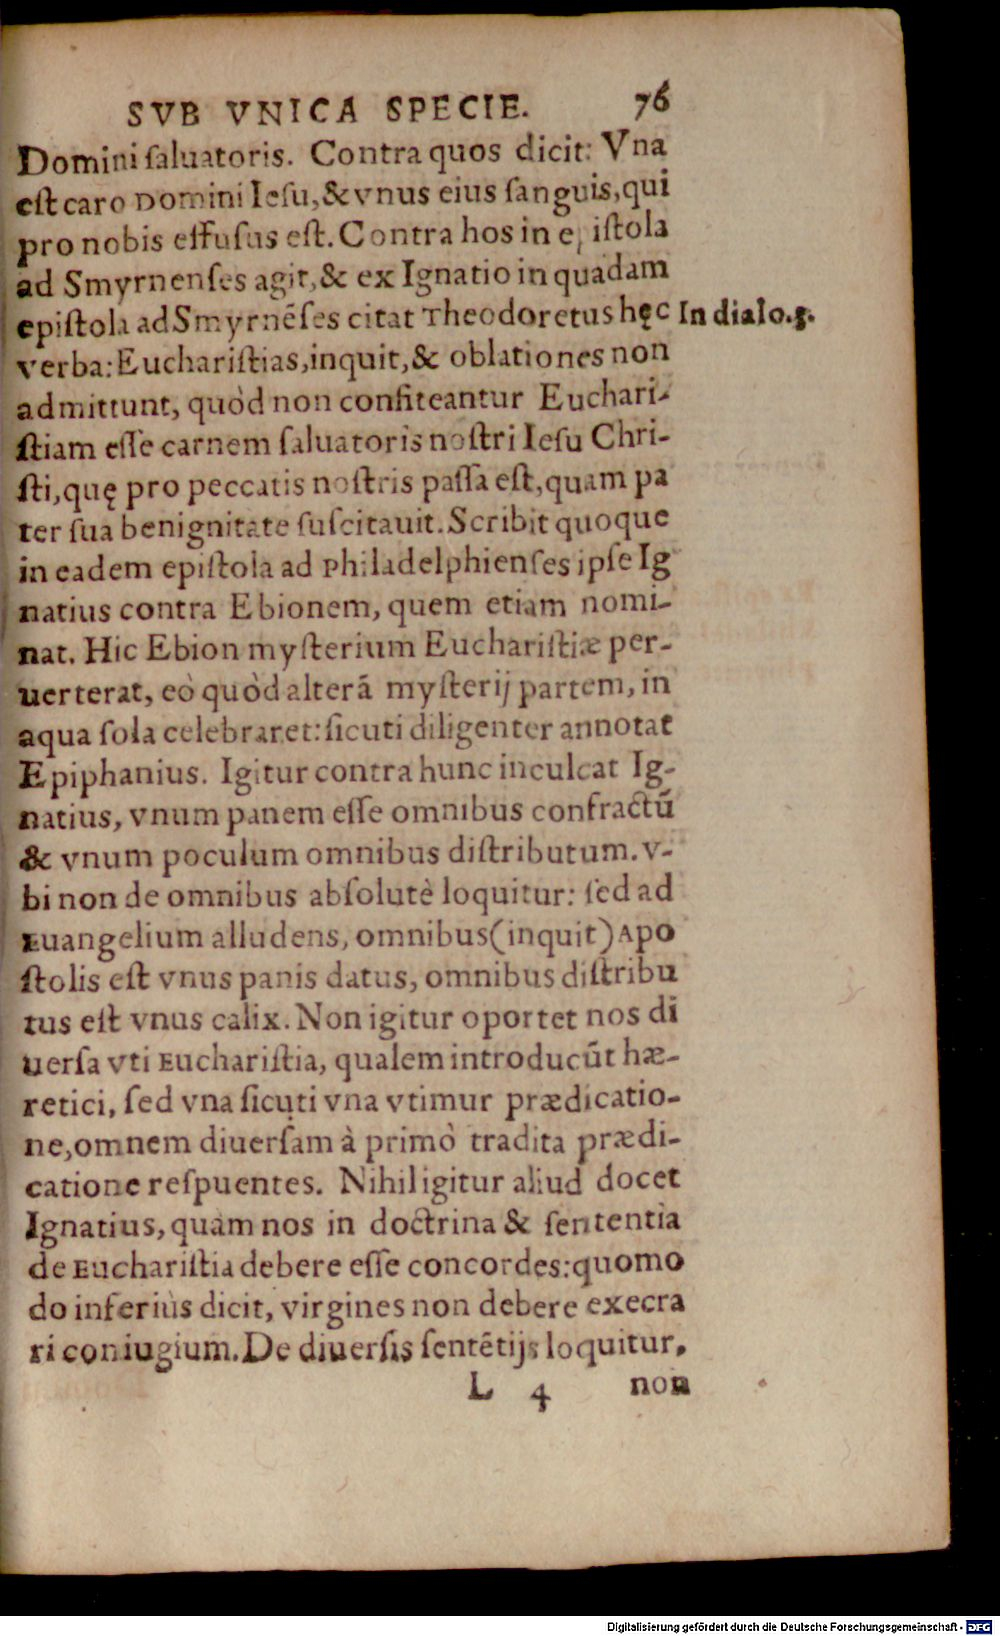 SVB VNICA SPECIE. 76
Domini saluatoris. Contra quos dicit: Vna
est caro Domini Iesu, & vnus eius sanguis, qui
pro nobis effusus est. Contra hos in epistola
ad Smyrnenses agit, & ex Ignatio in quadam
epistola ad Smyrnēses citat Theodoretus hęc
In dialo.3.
verba: Eucharistias, inquit, & oblationes non
admittunt, quòd non confiteantur Euchari-
stiam esse carnem saluatoris nostri Iesu Chri-
sti, quę pro peccatis nostris passa est, quam pa
ter sua benignitate suscitauit. Scribit quoque
in eadem epistola ad Philadelphienses ipse Ig
natius contra Ebionem, quem etiam nomi-
nat. Hic Ebion mysterium Eucharistiæ per-
uerterat, eò quòd alterā mysterij partem, in
aqua sola celebraret: sicuti diligenter annotat
Epiphanius. Igitur contra hunc inculcat Ig-
natius, vnum panem esse omnibus confractū
& vnum poculum omnibus distributum. v-
bi non de omnibus absolutè loquitur: sed ad
Euangelium alludens, omnibus (inquit) Apo
stolis est vnus panis datus, omnibus distribu
tus est vnus calix. Non igitur oportet nos di
uersa vti Eucharistia, qualem introducūt hæ-
retici, sed vna sicuti vna vtimur prædicatio-
ne, omnem diuersam à primò tradita prædi-
catione respuentes. Nihil igitur aliud docet
Ignatius, quàm nos in doctrina & sententia
de Eucharistia debere esse concordes: quomo
do inferiùs dicit, virgines non debere execra
ri coniugium. De diuersis sentētijs loquitur,
L 4 non
Digitalisierung gefördert durch die Deutsche Forschungsgemeinschaft - DFG